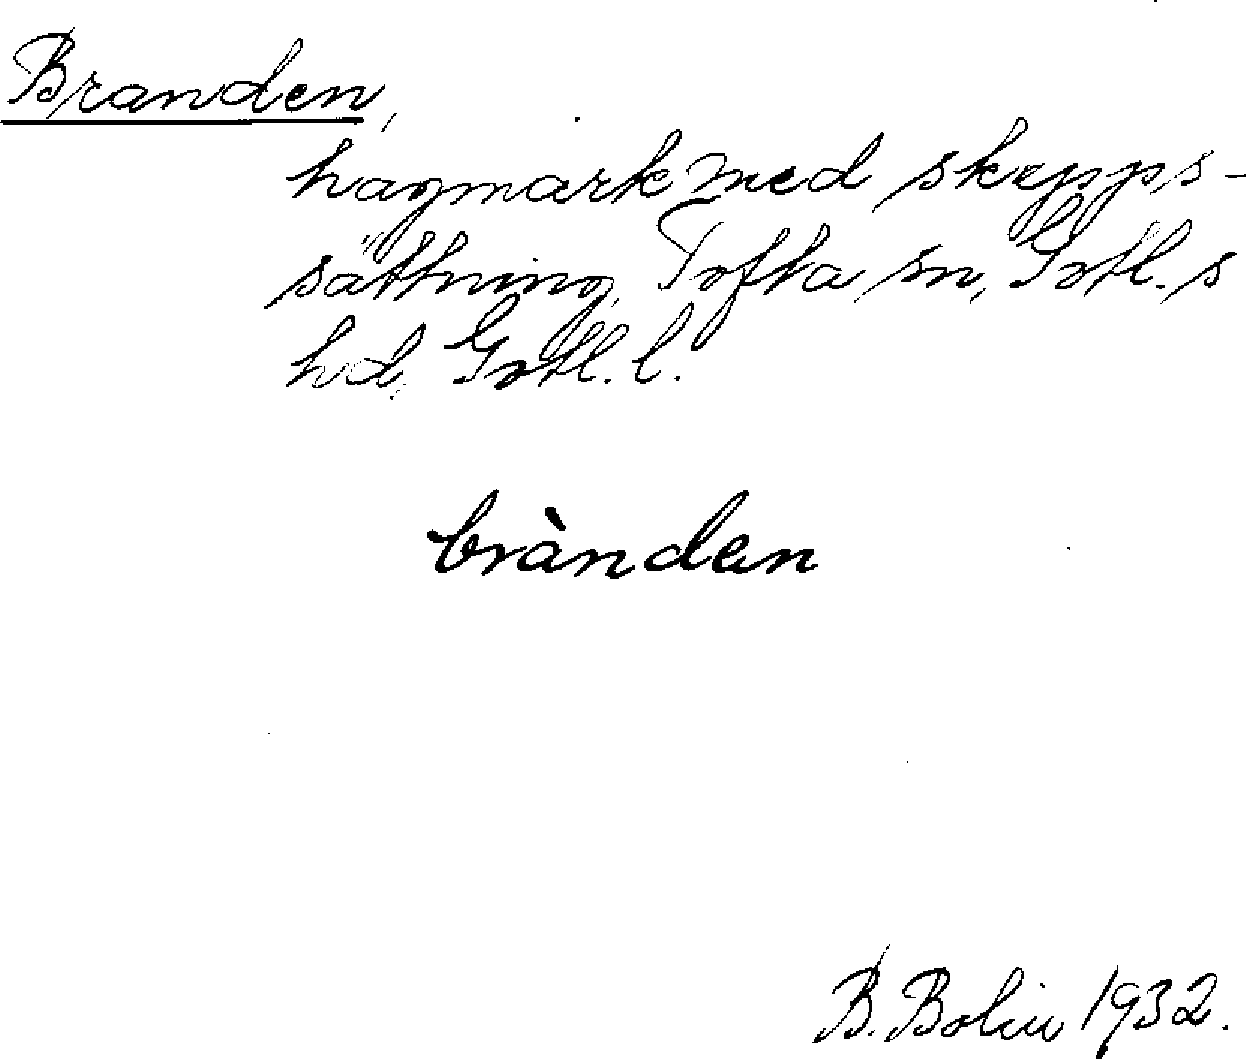 Branden,
hagmark med skepps-
sättning, Tofta sn, Gotl. s
hd, Gotl. l.
bràndan
B. Bolin 1932.